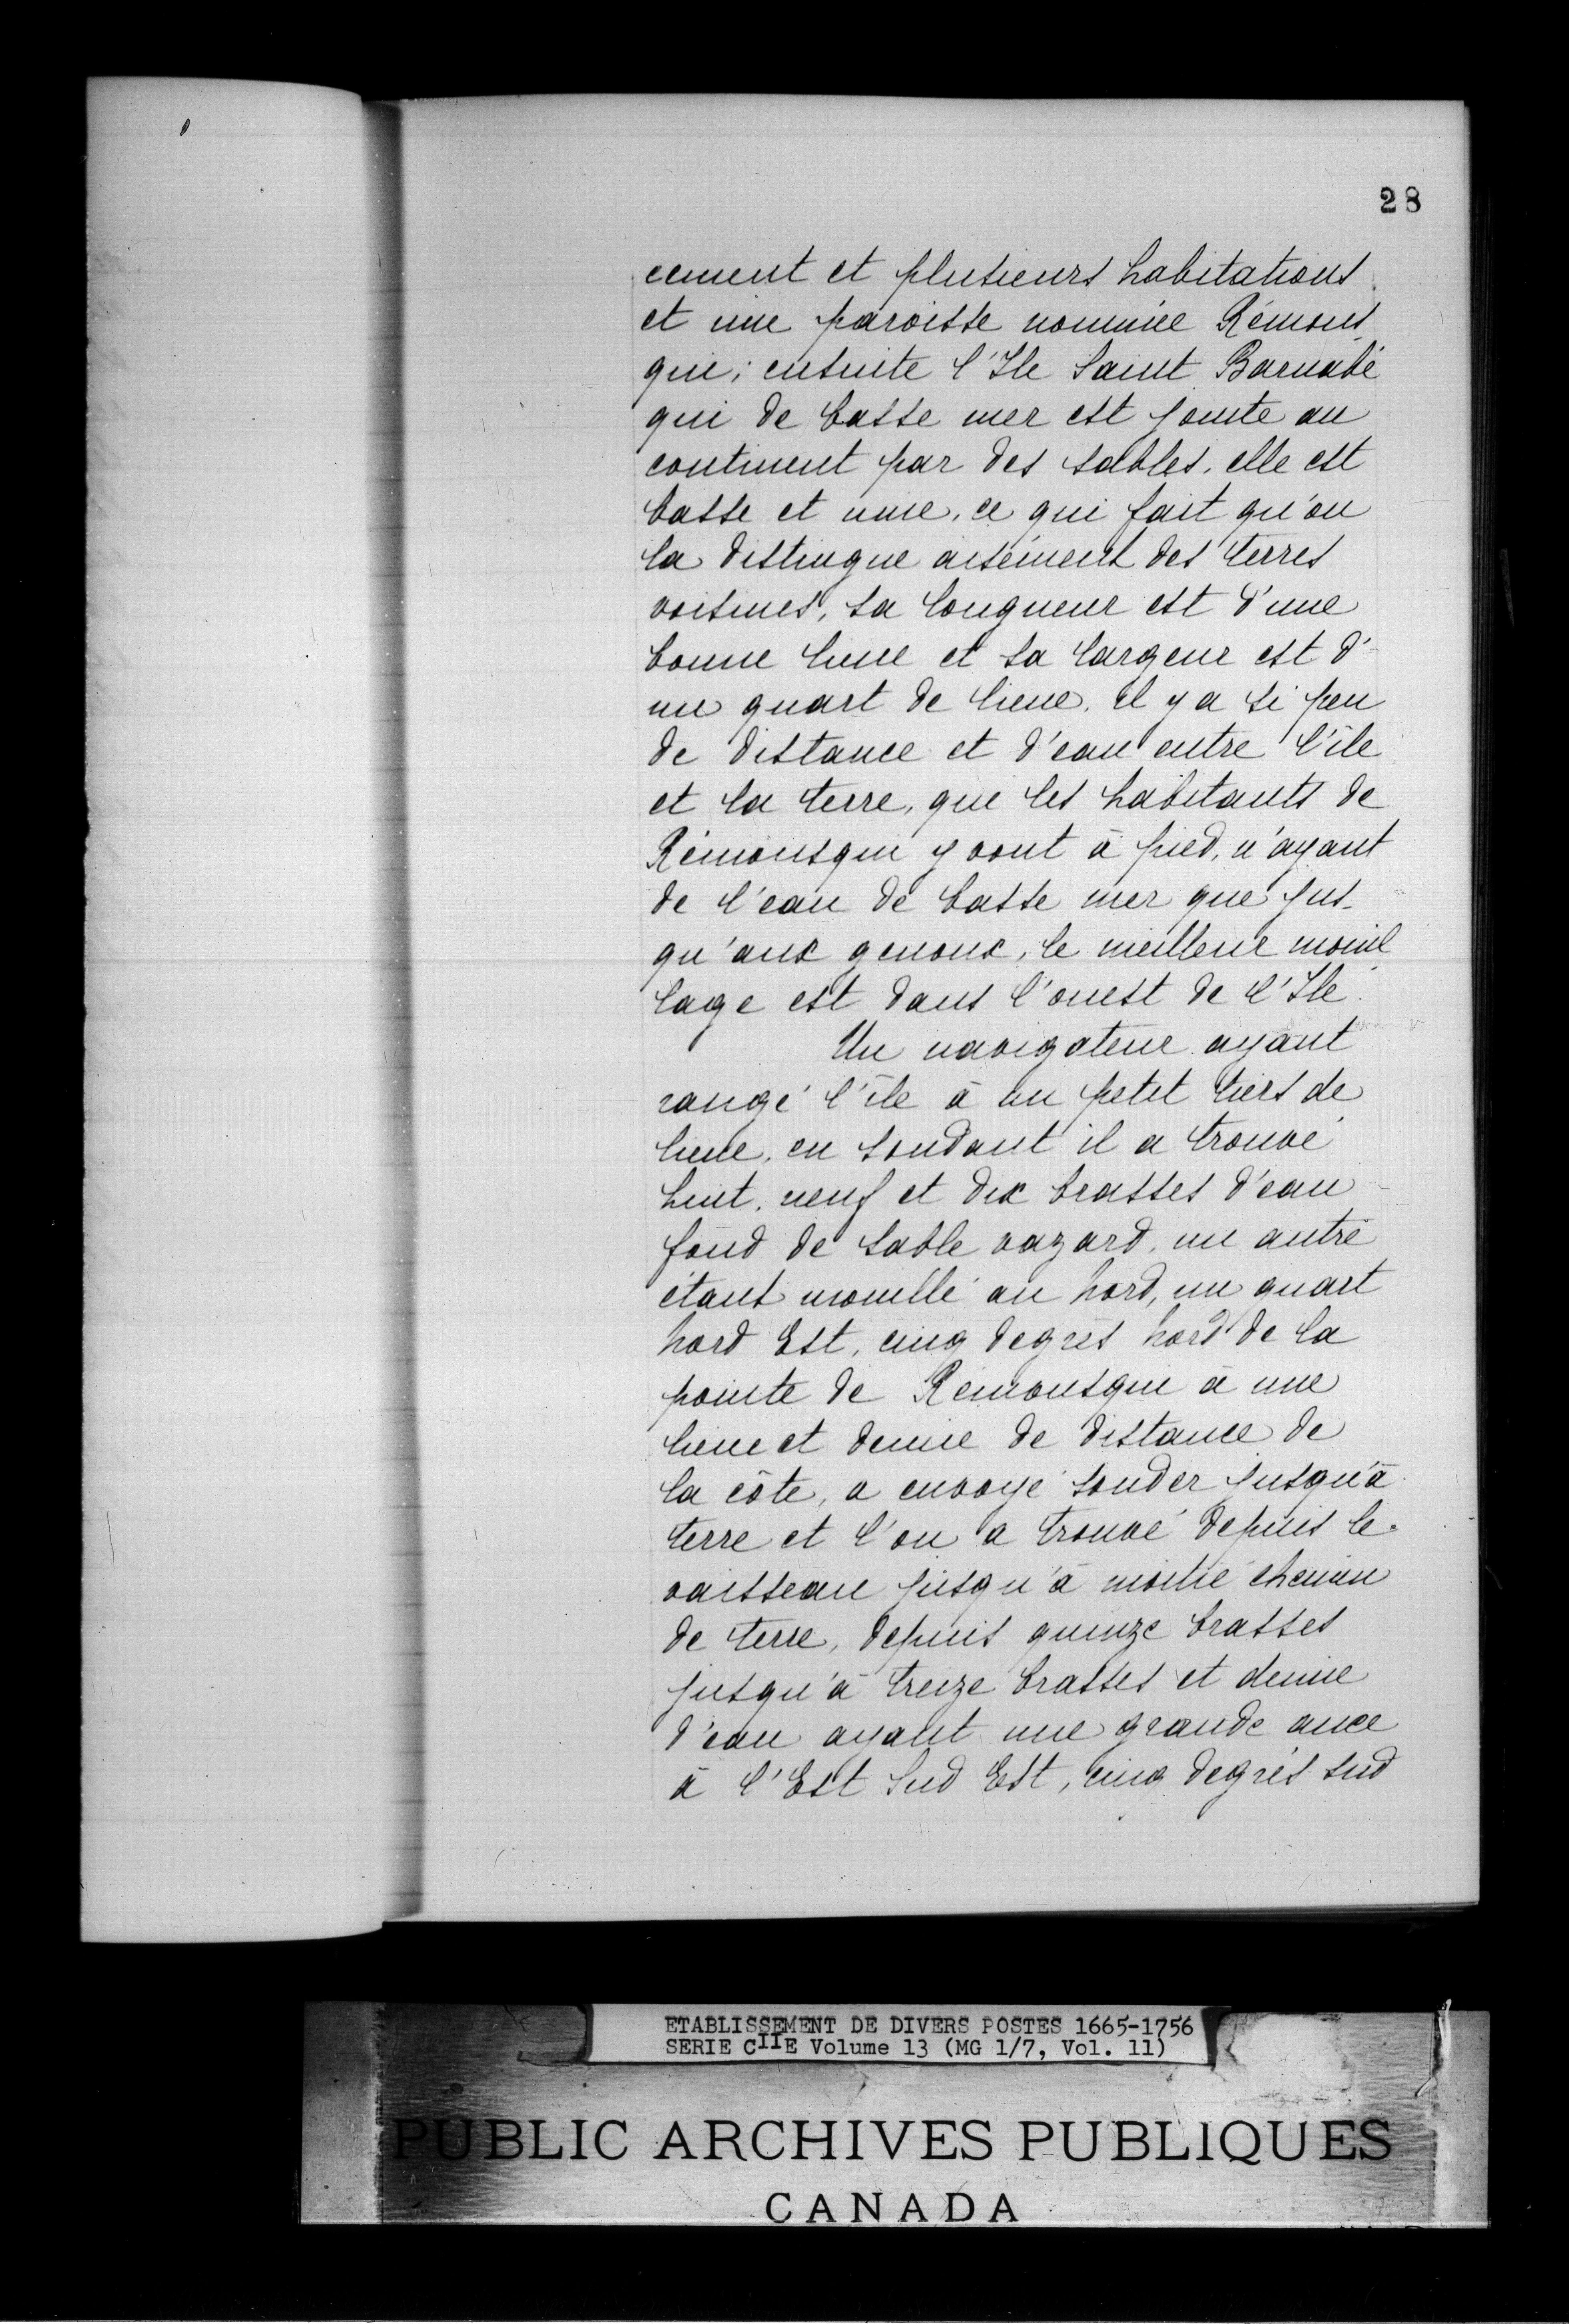 28
cement et plusieurs habitations
et une paroisse nommée Rémous
qui; ensuite l'Ile Saint Barnabé
qui de basse mer est jointe au
continent par des sables, elle est
basse et unie, ce qui fait qu'on
la distingue aisément des terres
voisines, sa longueur est d'une
bonne lieue et sa largeur est d'
un quart de lieue, il y a si peu
de distance et d'eau entre l'île
et la terre, que les habitants de
Rémousqui y vont à pied, n'ayant
de l'eau de basse mer que jus-
qu'aux genoux, le meilleur mouil
lage est dans l'ouest de l'Ile.
Un navigateur ayant
rangé l'île à un petit tiers de
lieue, en sondant il a trouvé
huit, neuf et dix brasses d'eau
fond de sable vazard, un autre
étant mouillé au nord, un quart
nord Est, cinq degrés nord de la
pointe de Rémousqui à une
lieue et demie de distance de
la côte, a envoyé sonder jusqu'à
terre et l'on a trouvé depuis le
vaisseau jusqu'à moitié chemin
de terre, depuis quinze brasses
jusqu'à treize brasses et demie
d'eau ayant une grande ance
à l'Est Sud Est, cinq degrés sud
ETABLISSEMENT DE DIVERS POSTES 1665-1756
SERIE CIIE Volume 13 (MG 1/7, Vol. 11)
PUBLIC ARCHIVES PUBLIQUES
CANADA